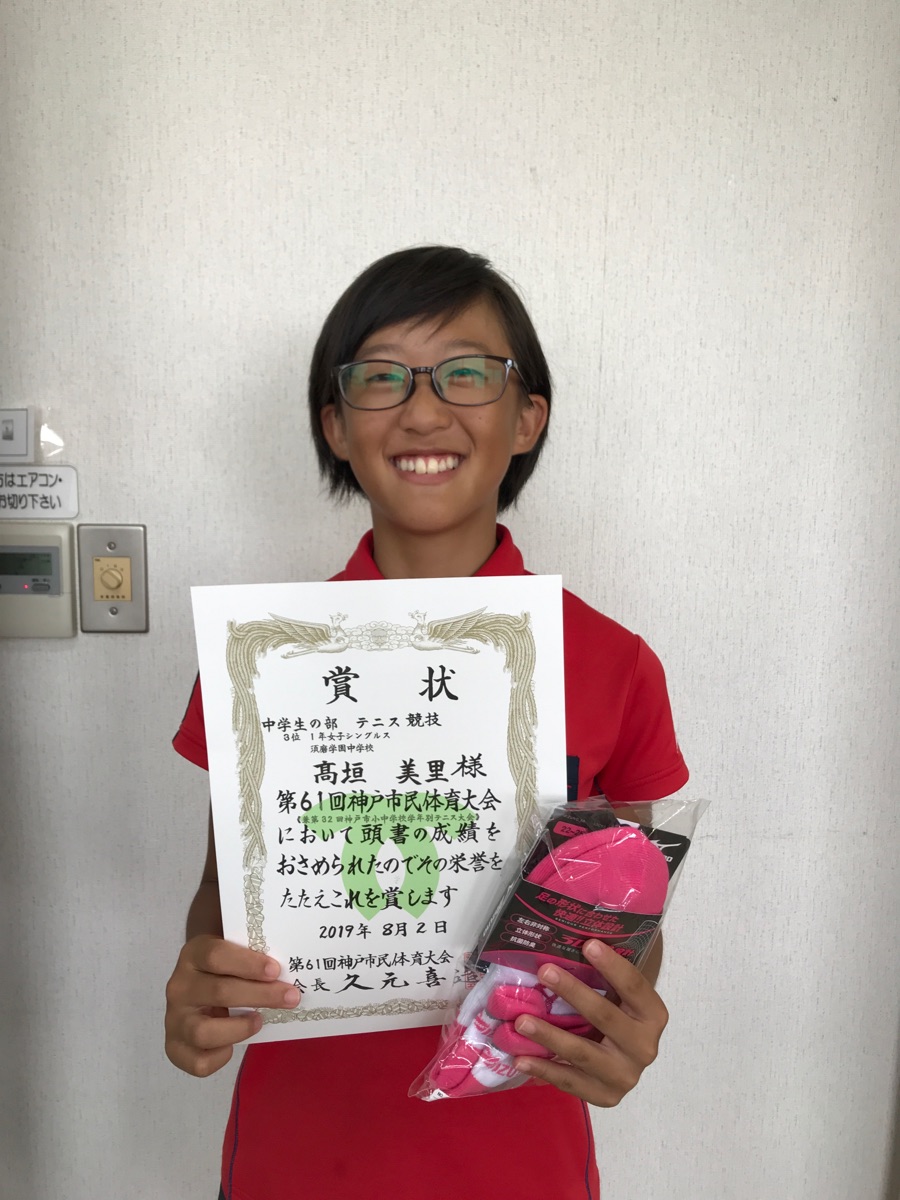 賞 状
中学生の部 テニス 競技
3位 1年女子シングルス
須磨学園中学校
髙垣 美里 様
第61回神戸市民体育大会
《兼第32回神戸市小中学校学年別テニス大会》
において頭書の成績を
おさめられたのでその栄誉を
たたえこれを賞します
2019年 8月 2日
第61回神戸市民体育大会
会長 久元喜造
はエアコン・
お切り下さい
足の形状に合わせた
快適な立体設計
左右非対称
立体形状
抗菌防臭